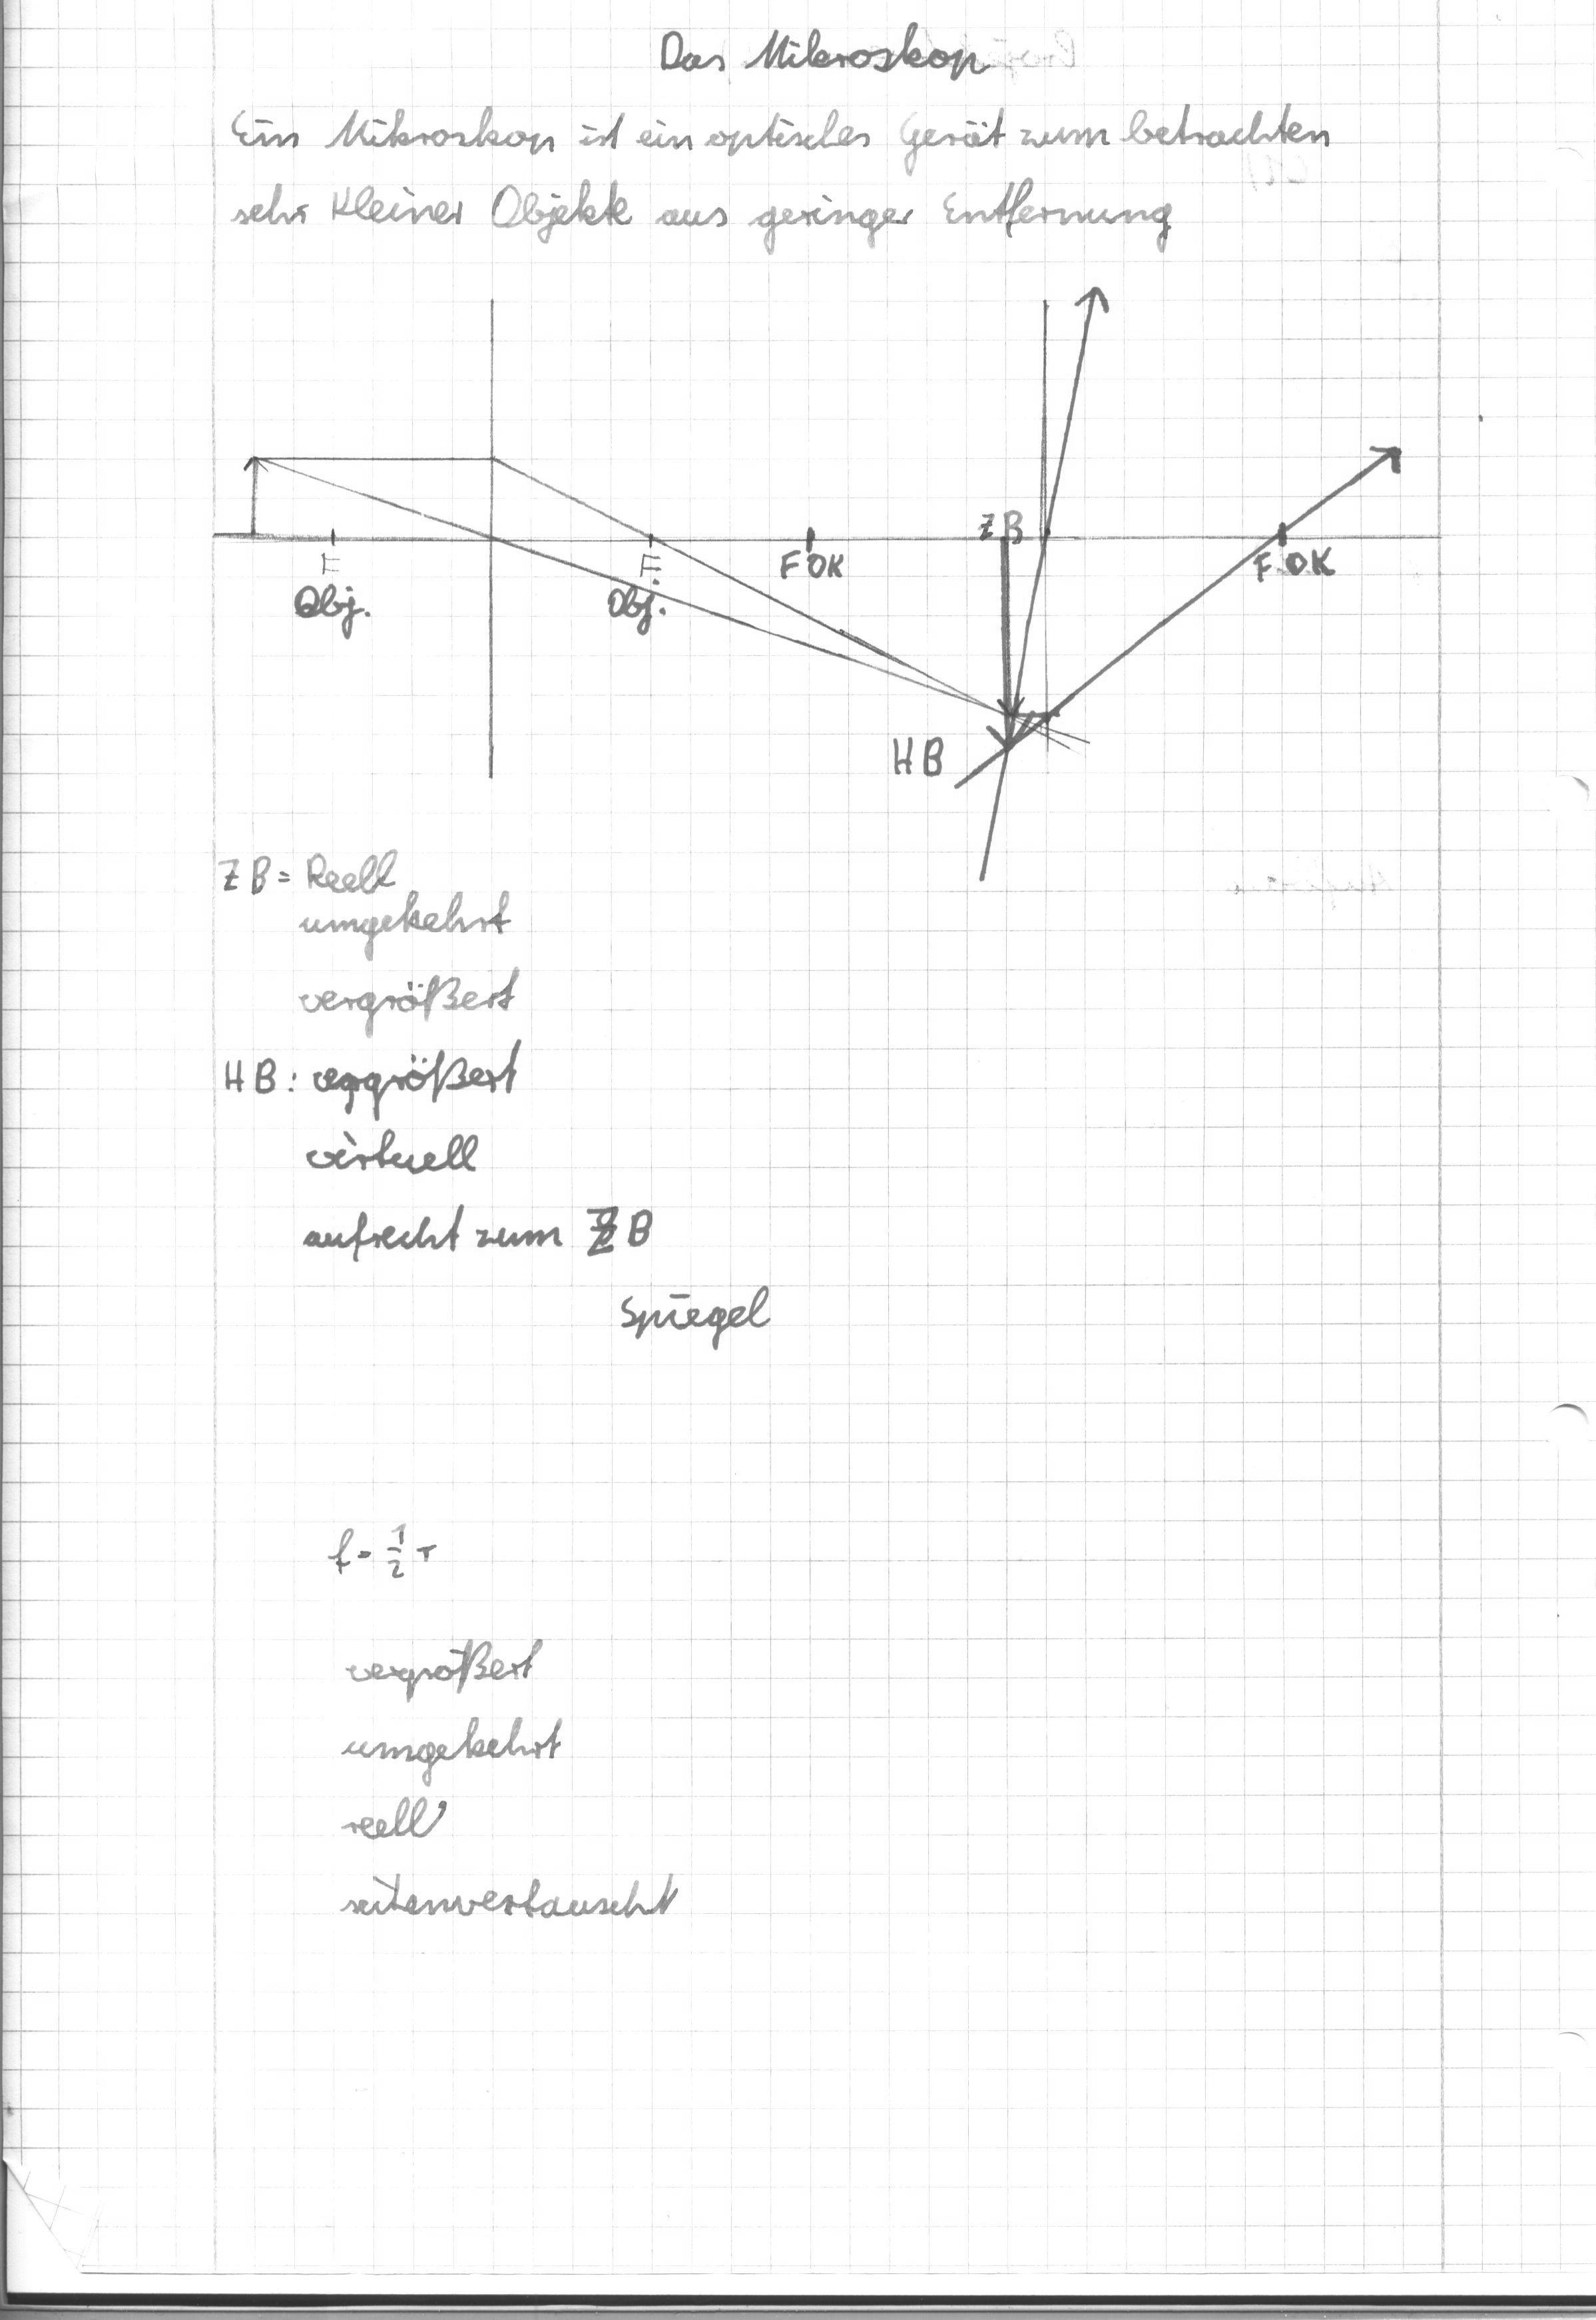 Das Mikroskop
Ein Mikroskop ist ein optisches Gerät zum betrachten
sehr kleiner Objekte aus geringer Entfernung
ZB
F F. FOK F OK
Obj. Obj.
HB
ZB = Reell
umgekehrt
vergrößert
HB: vergrößert
virtuell
aufrecht zum ZB
Spiegel
f = 1/2 r
vergrößert
umgekehrt
reell
seitenvertauscht